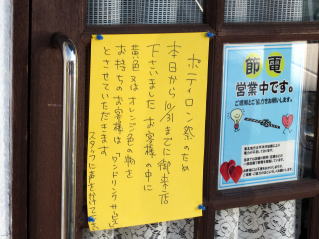 ポティロン祭のため
本日から10/31までに御来店
下さいましたお客様の中に
黄色又はオレンジ色の物を
お持ちのお客様は「ワンドリンクサービス
とさせていただきます
スタッフに声をかけて
節電
営業中です。
ご理解とご協力をお願いします。